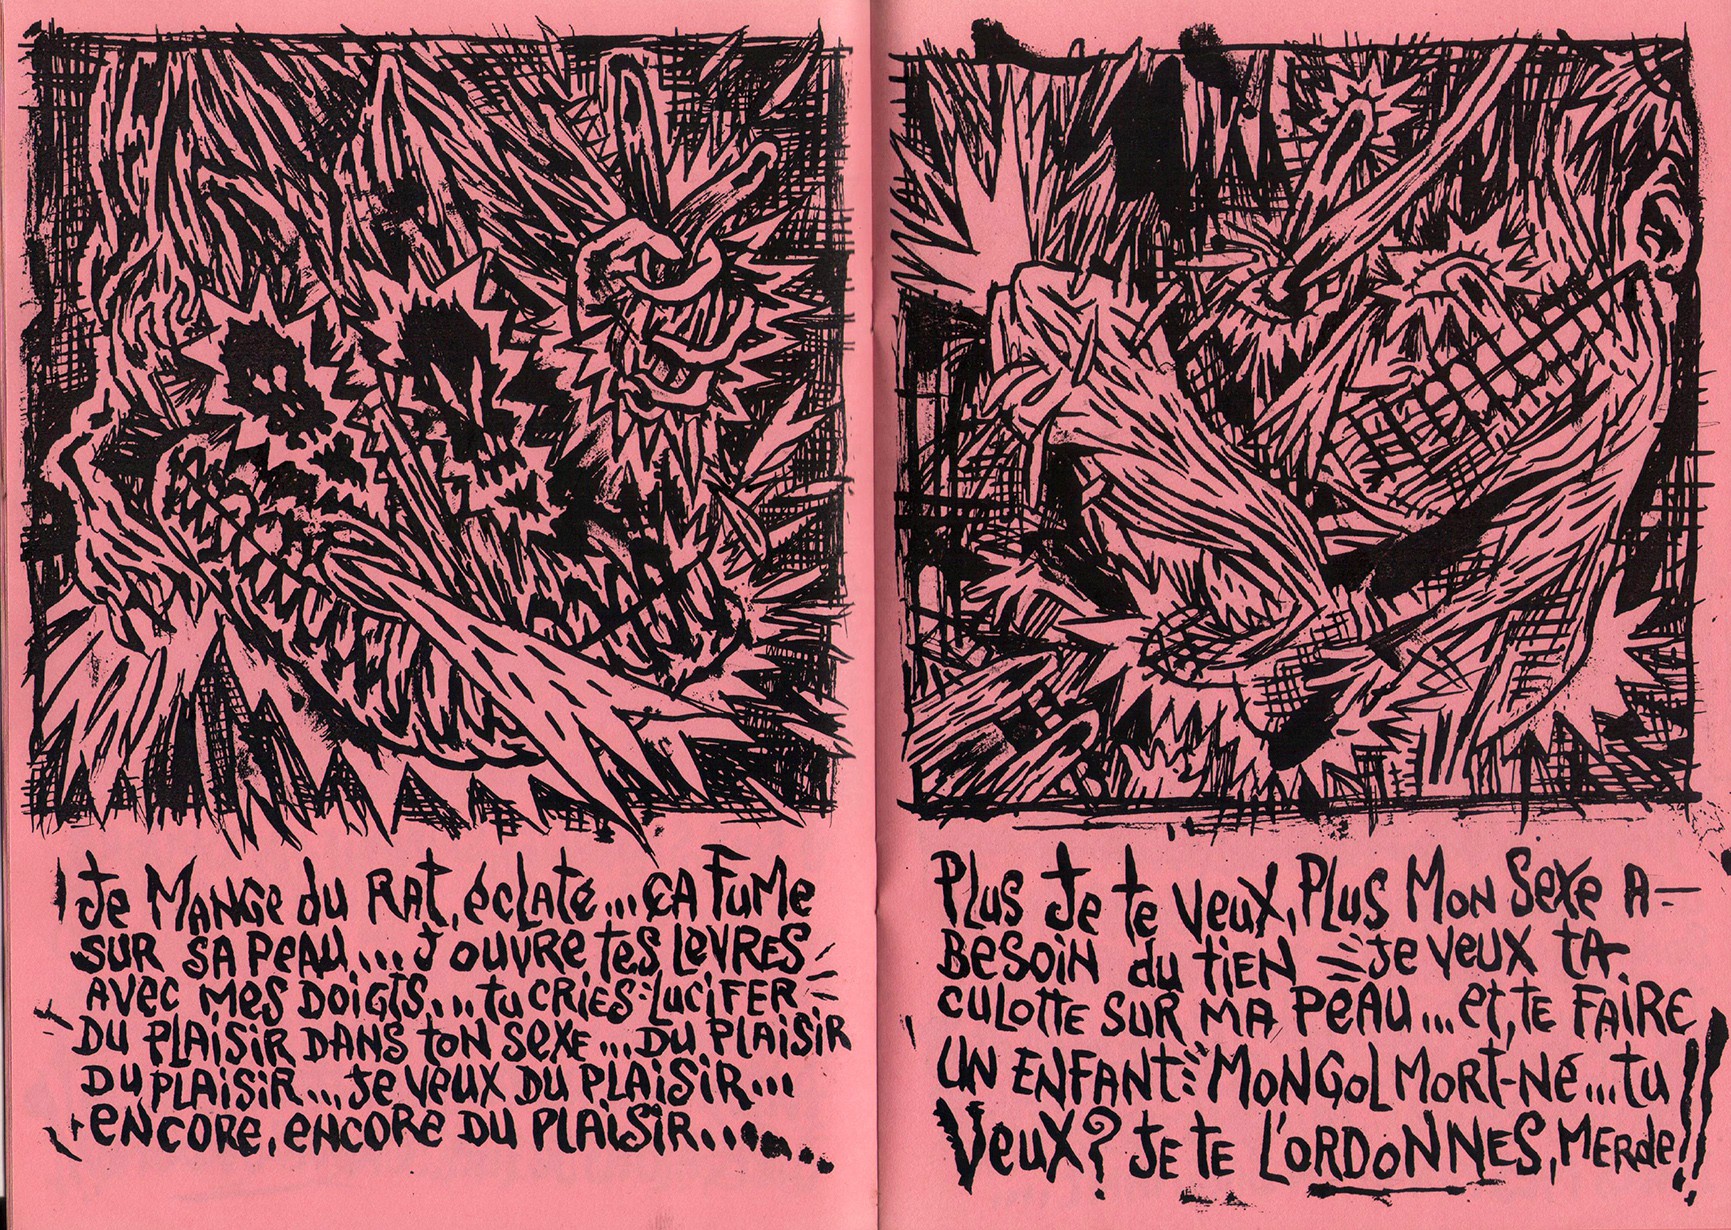 Je MANGe du RAt, éclaté... çA FuMe
SUR SA PeAu... J'OUVRe tes LèVRES
AVeC Mes DOiGtS... tu CRies : LuCiFER
DU PLAiSiR DANS tON SeXe... DU PLAiSiR
DU PLAiSiR... Je VeuX DU PLAiSiR...
eNCORe, eNCORe DU PLAiSiR.....
PLus Je te VeuX, PLus MoN SeXe A-
BeSOiN du tieN Je VeuX tA
CuLOtte SUR MA PeAu... et, te FAiRe
UN ENFANt : MoNGoL MoRt-Né... tu
VeuX ? Je te L'ORDoNNeS, MeRde !!